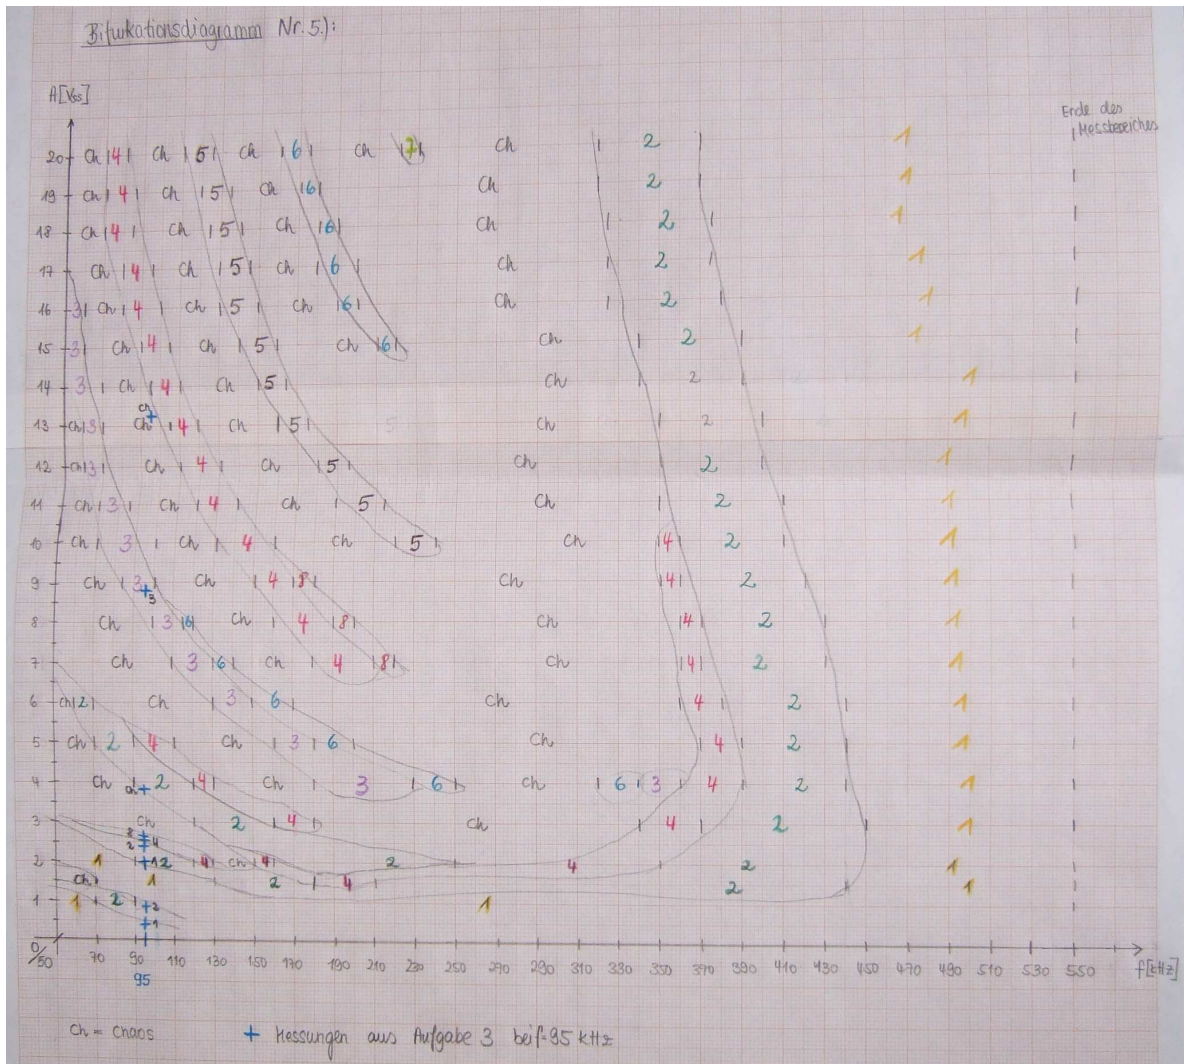 Bifurkationsdiagramm Nr. 5.):
A[Vss]
Ende des
Messbereiches
20 Ch 4 Ch 5 Ch 6 Ch 7 Ch 2 1
19 Ch 4 Ch 5 Ch 6 Ch 2 1
18 Ch 4 Ch 5 Ch 6 Ch 2 1
17 Ch 4 Ch 5 Ch 6 Ch 2 1
16 3 Ch 4 Ch 5 Ch 6 Ch 2 1
15 3 Ch 4 Ch 5 Ch 6 Ch 2 1
14 3 Ch 4 Ch 5 Ch 2 1
ch
13 Ch 3 Ch 4 Ch 5 Ch 2 1
12 Ch 3 Ch 4 Ch 5 Ch 2 1
11 Ch 3 Ch 4 Ch 5 Ch 2 1
10 Ch 3 Ch 4 Ch 5 Ch 4 2 1
9 Ch 3 Ch 4 8 Ch 4 2 1
3
8 Ch 3 6 Ch 4 8 Ch 4 2 1
7 Ch 3 6 Ch 4 8 Ch 4 2 1
6 Ch 2 Ch 3 6 Ch 4 2 1
5 Ch 2 4 Ch 3 6 Ch 4 2 1
4 Ch ch 2 4 Ch 3 6 Ch 6 3 4 2 1
3 Ch 2 4 Ch 4 2 1
8
2 4
2 1 1 2 4 Ch 4 2 4 2 1
Ch 1 2 4 2 1
1 1 2 2 1
1
0/50 70 90 110 130 150 170 190 210 230 250 270 290 310 330 350 370 390 410 430 450 470 490 510 530 550 f[kHz]
95
Ch = Chaos + Messungen aus Aufgabe 3 bei f=95 kHz